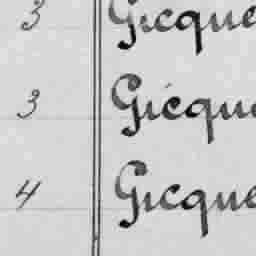 3 Gicque
3 Gicque
4 Gicque